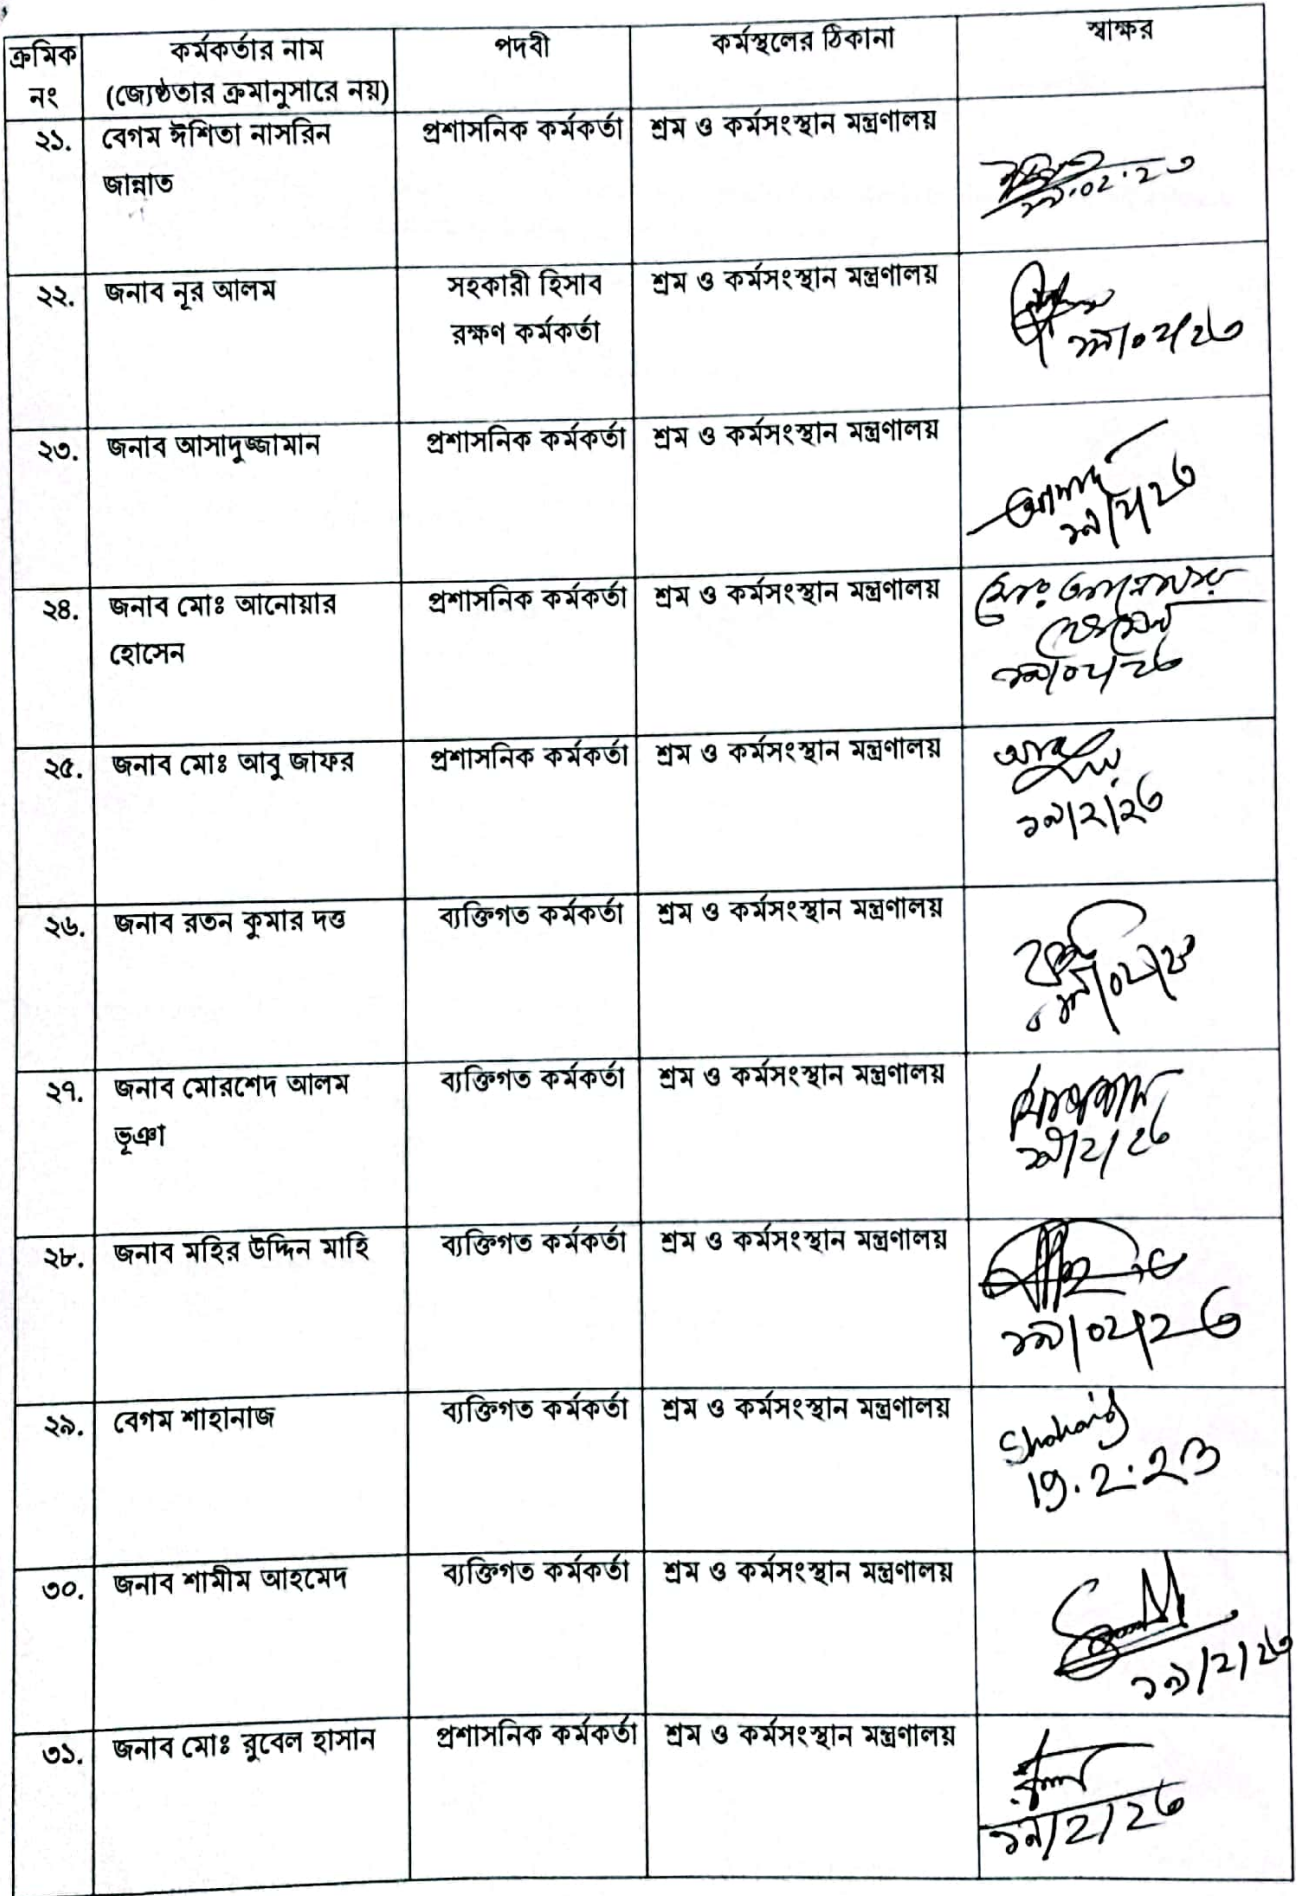 ক্রমিক নং | কর্মকর্তার নাম (জ্যেষ্ঠতার ক্রমানুসারে নয়) | পদবী | কর্মস্থলের ঠিকানা | স্বাক্ষর
২১. | বেগম ঈশিতা নাসরিন জান্নাত | প্রশাসনিক কর্মকর্তা | শ্রম ও কর্মসংস্থান মন্ত্রণালয় | ১৯.০২.২৩
২২. | জনাব নূর আলম | সহকারী হিসাব রক্ষণ কর্মকর্তা | শ্রম ও কর্মসংস্থান মন্ত্রণালয় | ১৯/০২/২৩
২৩. | জনাব আসাদুজ্জামান | প্রশাসনিক কর্মকর্তা | শ্রম ও কর্মসংস্থান মন্ত্রণালয় | ১৯/২/২৩
২৪. | জনাব মোঃ আনোয়ার হোসেন | প্রশাসনিক কর্মকর্তা | শ্রম ও কর্মসংস্থান মন্ত্রণালয় | মোঃ আনোয়ার হোসেন ১৯/০২/২৩
২৫. | জনাব মোঃ আবু জাফর | প্রশাসনিক কর্মকর্তা | শ্রম ও কর্মসংস্থান মন্ত্রণালয় | ১৯/২/২৩
২৬. | জনাব রতন কুমার দত্ত | ব্যক্তিগত কর্মকর্তা | শ্রম ও কর্মসংস্থান মন্ত্রণালয় | ১৯/০২/২৩
২৭. | জনাব মোরশেদ আলম ভূঞা | ব্যক্তিগত কর্মকর্তা | শ্রম ও কর্মসংস্থান মন্ত্রণালয় | ১৯/২/২৩
২৮. | জনাব মহির উদ্দিন মাহি | ব্যক্তিগত কর্মকর্তা | শ্রম ও কর্মসংস্থান মন্ত্রণালয় | ১৯/০২/২৩
২৯. | বেগম শাহানাজ | ব্যক্তিগত কর্মকর্তা | শ্রম ও কর্মসংস্থান মন্ত্রণালয় | Shahanaj 19.2.23
৩০. | জনাব শামীম আহমেদ | ব্যক্তিগত কর্মকর্তা | শ্রম ও কর্মসংস্থান মন্ত্রণালয় | ১৯/২/২৩
৩১. | জনাব মোঃ রুবেল হাসান | প্রশাসনিক কর্মকর্তা | শ্রম ও কর্মসংস্থান মন্ত্রণালয় | ১৯/২/২৩